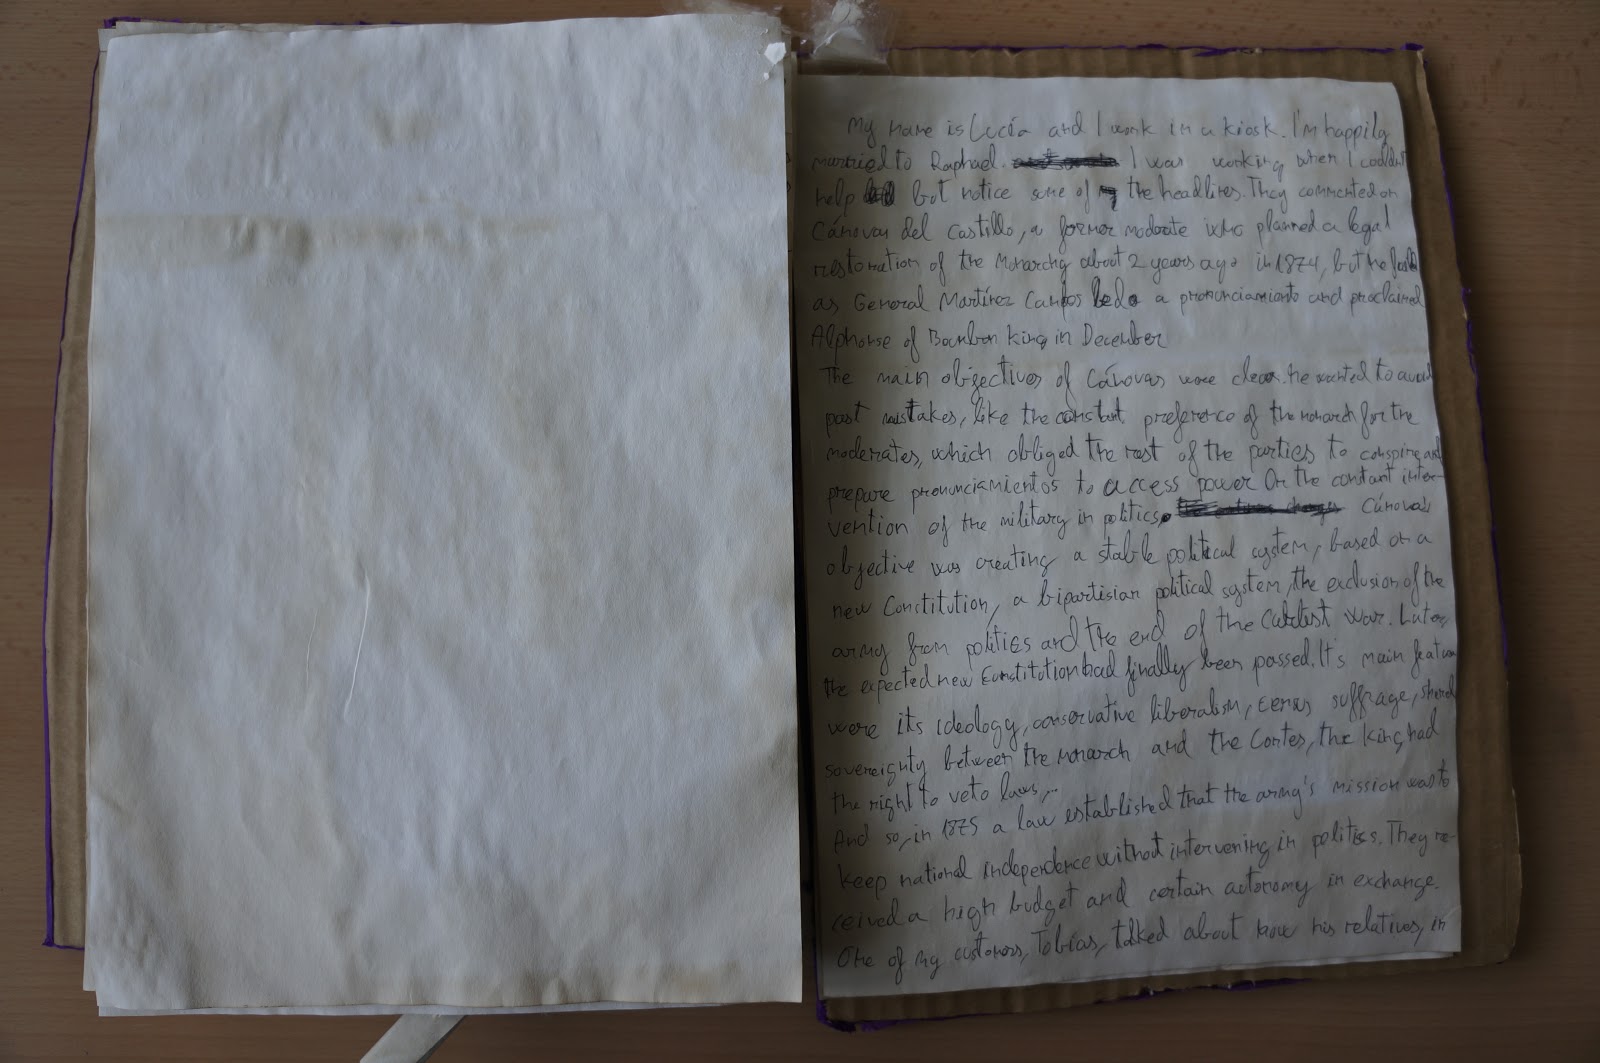 My name is Lucía and I work in a kiosk. I'm happily
married to Raphael. I was working when I couldn't
help but notice some of the headlines. They commented on
Cánovas del Castillo, a former moderate who planned a legal
restoration of the Monarchy about 2 years ago in 1874, but he
as General Martínez Campos led a pronunciamiento and proclaimed
Alphonse of Bourbon King in December
The main objectives of Cánovas were clear. he wanted to avoid
past mistakes, like the constant preference of the monarch for the
moderates, which obliged the rest of the parties to conspire and
prepare pronunciamientos to access power Or the constant inter-
vention of the military in politics. Cánovas
objective was creating a stable political system, based on a
new Constitution, a bipartisian political system, the exclusion of the
army from politics and the end of the Carlist war. Later,
the expected new Constitution had finally been passed. It's main features
were its ideology, conservative liberalism, census suffrage, shared
sovereignty between the monarch and the Cortes, the King had
the right to veto laws,...
And so, in 1875 a law established that the army's mission was to
keep national independence without intervening in politics. They re-
ceived a high budget and certain autonomy in exchange.
One of my customers, Tobías, talked about how his relatives, in